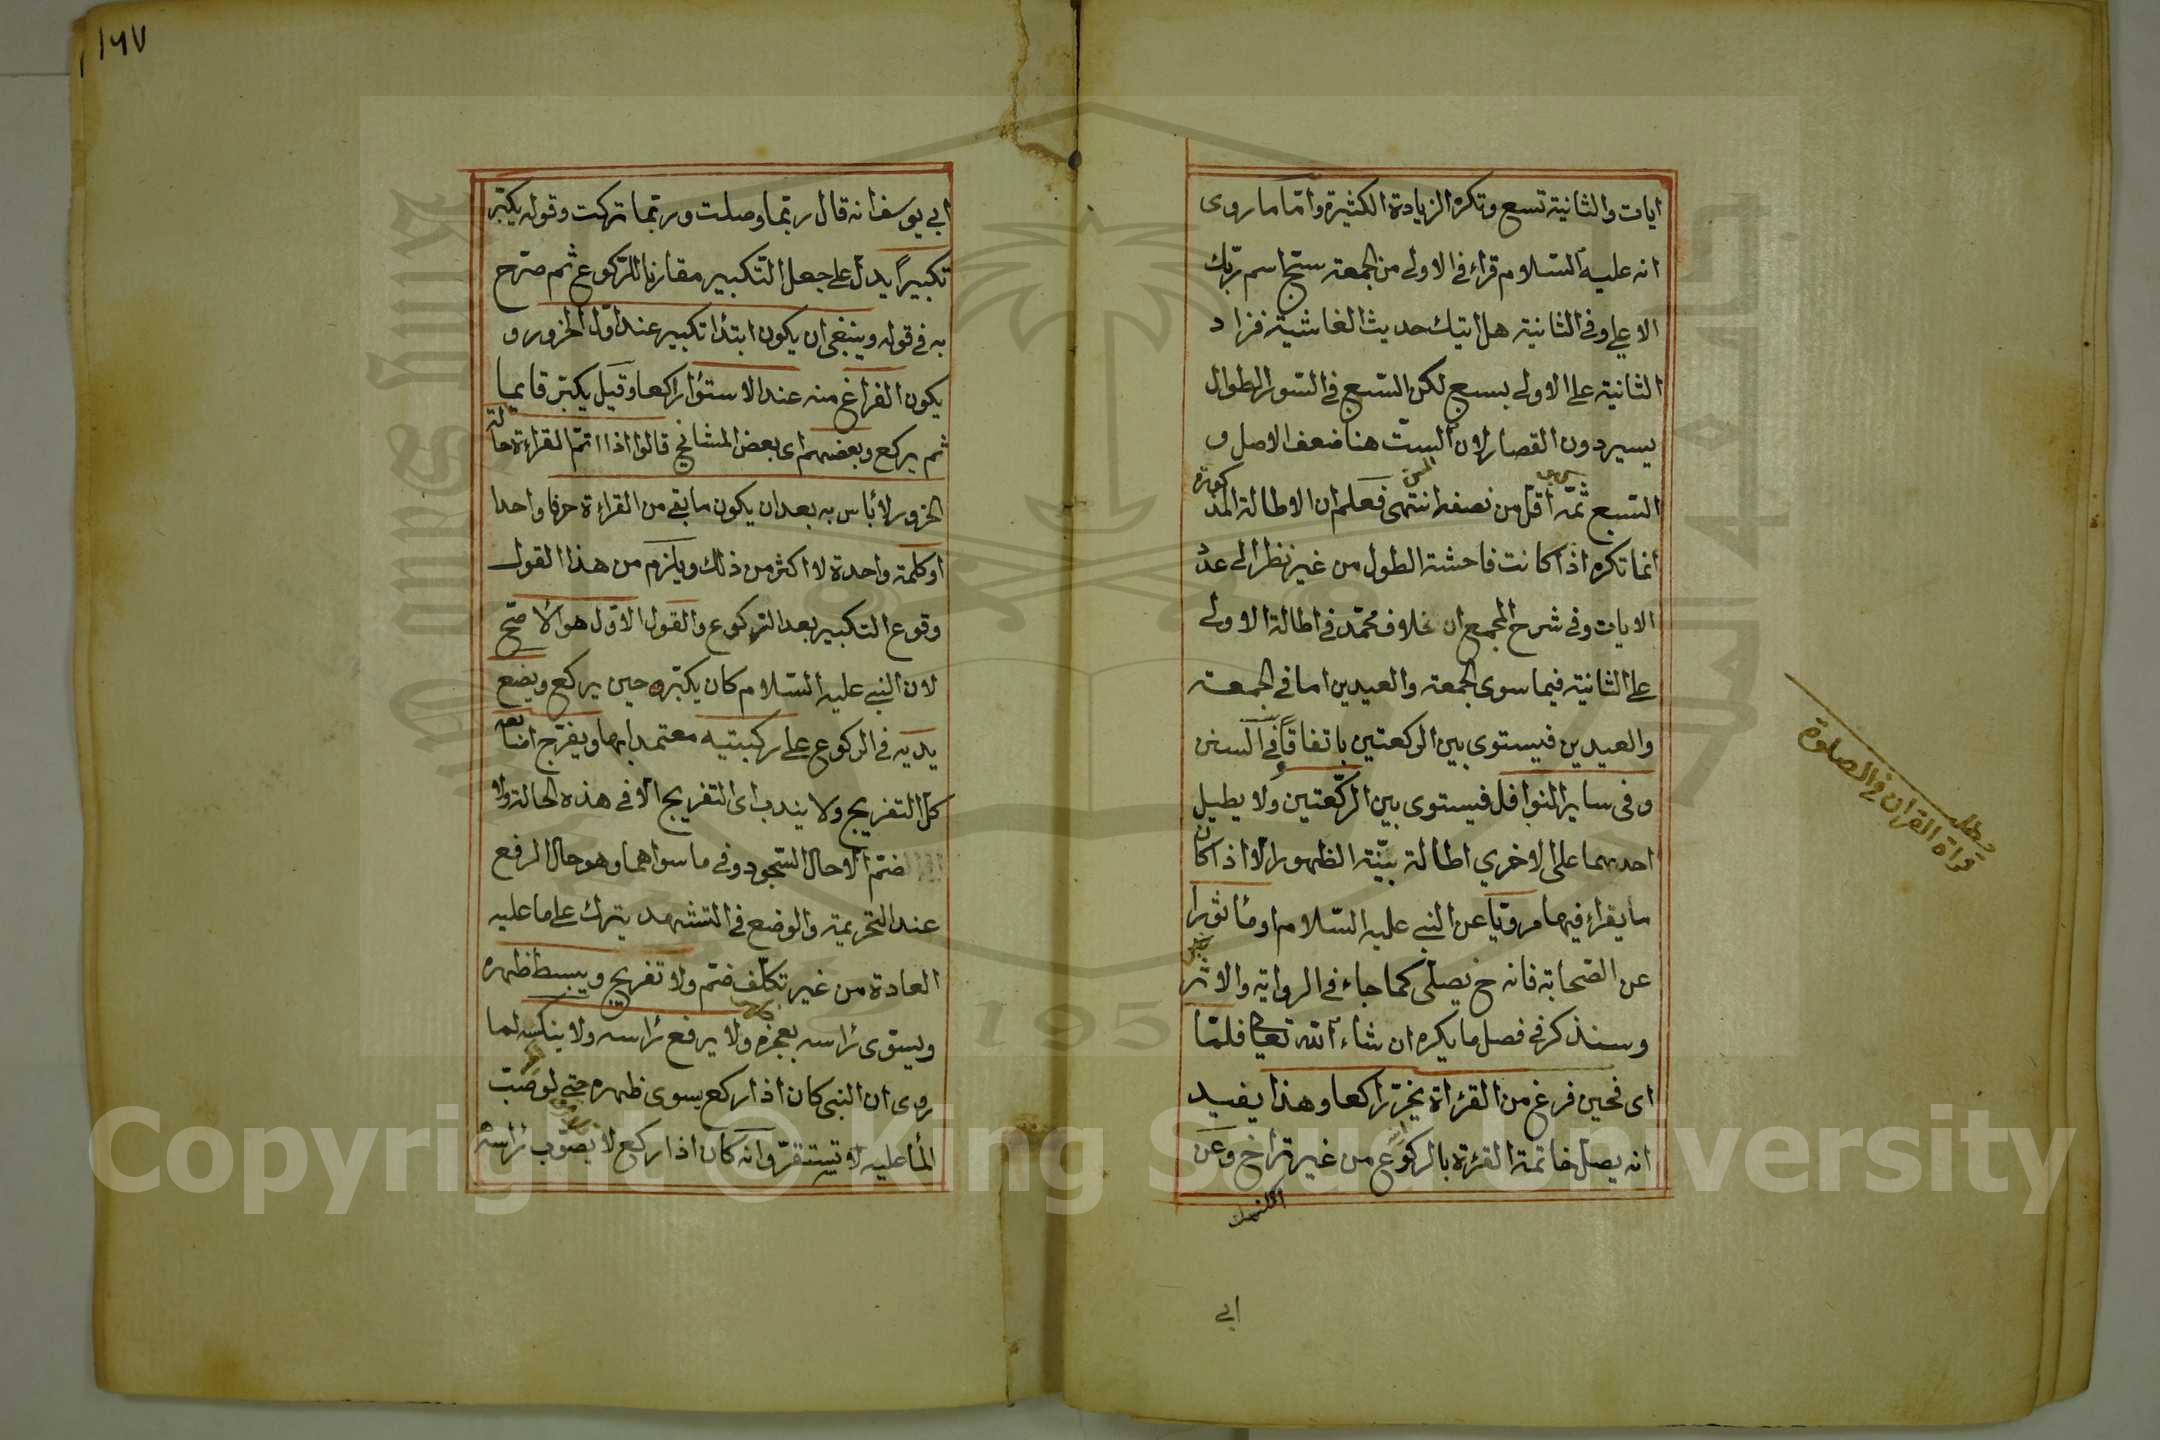 ايات والثانية تسع وتكره الزيادة الكثيرة وامّا ما روى
انه عليه السّلام قراء في الاولى من الجمعة سبّح اسم ربّك
الاعلى وفي الثانية هل اتيك حديث الغاشية فزاد
الثانية على الاولى بسبع لكن السّبع في السّور الطوال
يسير دون القصار لان السّت هنا ضعف الاصل و
السّبع ثمّه اقل من نصفه انتهى فعلم ان الاطالة المذكورة
انما تكره اذا كانت فاحشة الطول من غير نظر الى عدد
الايات وفي شرح المجمع ان خلاف محمّد في اطالة الاولى
على الثانية فيما سوى الجمعة والعيدين اما في الجمعة
والعيدين فيستوى بين الركعتين باتفاقًا في السنن
وفي ساير النوافل فيستوى بين الركّعتين ولا يطيل
احديهما على الاخري اطالة بيّنة الظهور الا اذا كان
ما يقراء فيها مرويّا عن النبي عليه السّلام او مأثورا
عن الصّحابة فانه ح يصلّى كما جاء في الرواية والاثر
وسنذكر في فصل ما يكره ان شاء الله تعالى فلمّا
اى فحين فرغ من القرٔاة يخرّ راكعا وهذا يفيد
انه يصل خاتمة القرٔة بالركوع من غير تراخ وعن
ابي
مطلب
قراة القران في الصلوة
١٦٧
ابي يوسف انه قال ربّما وصلت وربّما تركت وقوله يكبّر
تكبيرًا يدل على جعل التّكبير مقارنا للرّكوع ثم صرّح
به في قوله وينبغي ان يكون ابتدٔا تكبير عند اوّل الخرور و
يكون الفراغ منه عند الاستوٰا راكعا وقيل يكبّر قايما
ثم يركع وبعضهم اى بعض المشائخ قالوا اذا اتمّ القراءة حالة
الخرور لا بأس به بعد ان يكون ما بقي من القراءة حرفا واحدا
او كلمة واحدة لا اكثر من ذلك ويلزم من هذا القول
وقوع التكبير بعد الرّكوع والقول الاوّل هو الاصّح
لان النبي عليه السّلام كان يكبّر حين يركع ويضع
يديه في الركوع على ركبتيه معتمدا بهما ويفرّج اصابعه
كل التفريج ولا يندب اى التفريج الا في هذه الحالة ولا
الضّم الا حال السّجود وفي ما سواهما وهو حال الرفع
عند التحريمة والوضع في التشهد يترك على ما عليه
العادة من غير تكلّف ضمّ ولا تفريج ويبسط ظهره
ويسوّى رأسه بعجزه ولا يرفع رأسه ولا ينكسه لما
روى ان النبى كان اذا ركع يسوى ظهره حتى لو صبّ
المٔا عليه لا تستقرّ وانّه كان اذا ركع لا يصوّب رأسه